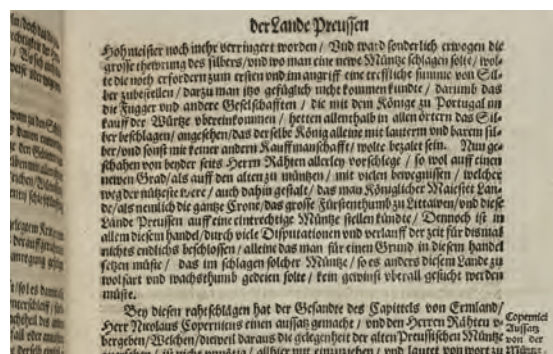 der Lande Preussen
Hohmeister noch mehr verringert worden / Und ward sonderlich erwogen die
grosse thewrung des silbers/und wo man eine newe Müntze schlagen solte/wol-
te die noch erfordern zum ersten und im angriff eine treffliche summe von Sil-
ber zubestellen / darzu man itzo gefüglich nicht kommen kundte / darumb das
die Fugger und andere Geselschafften / die mit dem Könige zu Portugal im
kauff der Würtze ubereinkommen / hetten allenthalb in allen örtern das Sil-
ber beschlagen/angesehen/das derselbe König alleine mit lauterm und barem sil-
ber/und sonst mit keiner andern Kauffmanschafft/wolte bezalet sein. Nun ge-
schahen von beyder seits Herrn Rähten allerley vorschlege / so wol auff einen
newen Grad/als auff den alten zu müntzen / mit vielen bewegnüssen / welcher
weg der nützeste were / auch dahin gestalt / das man Königlicher Maiestet Lan-
de/als nemlich die gantze Crone/das grosse Fürstenthumb zu Littawen/und diese
Lande Preussen auff eine eintrechtige Müntze stellen kündte / Dennoch ist in
allem diesem handel/durch viele Disputationen und verlauff der zeit für dismal
nichts endlichs beschlossen / alleine das man für einen Grund in diesem handel
setzen müste / das im schlagen solcher Müntze / so es anders diesem Lande zu
wolfart und wachsthumb gedeien solte / kein gewinst uberall gesucht werden
müste.
Bey diesen rahtschlägen hat der Gesandte des Capittels von Ermland/
Herr Nicolaus Copernicus einen auffsatz gemacht / und den Herren Rähten u-
bergeben/Welchen/dieweil daraus die gelegenheit der alten Preussischen Müntze
Copernici
Auffsatz
von der
Müntze